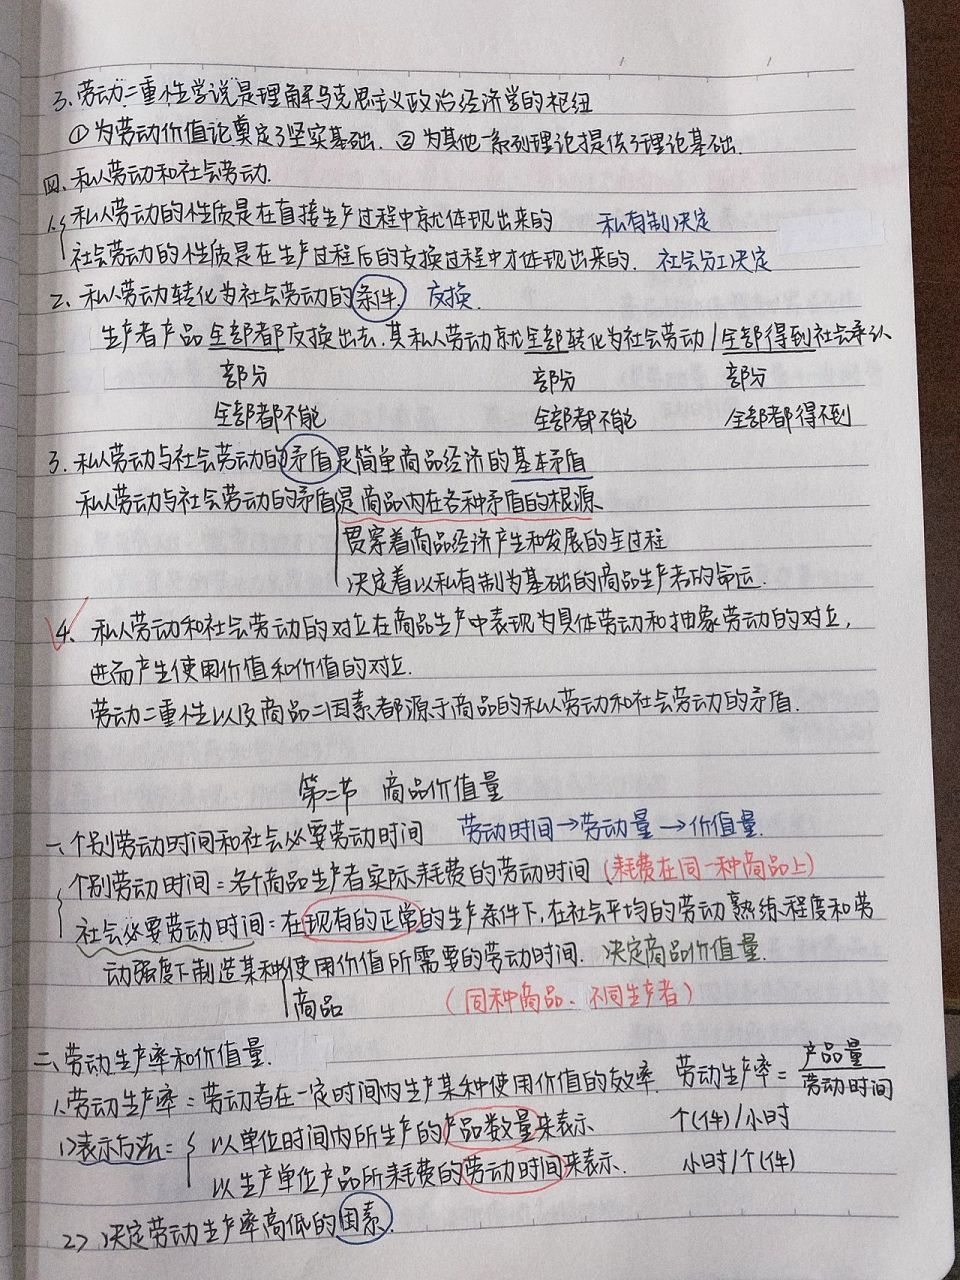 3、劳动二重性学说是理解马克思主义政治经济学的枢纽
①为劳动价值论奠定了坚实基础. ②为其他一系列理论提供了理论基础.
四、私人劳动和社会劳动.
1、私人劳动的性质是在直接生产过程中就体现出来的 私有制决定
社会劳动的性质是在生产过程后的交换过程中才体现出来的. 社会分工决定
2、私人劳动转化为社会劳动的条件 交换.
生产者产品全部都交换出去,其私人劳动就全部转化为社会劳动/全部得到社会承认
部分 部分 部分
全部都不能 全部都不能 全部都得不到
3.私人劳动与社会劳动的矛盾是简单商品经济的基本矛盾
私人劳动与社会劳动的矛盾是商品内在各种矛盾的根源.
贯穿着商品经济产生和发展的全过程
决定着以私有制为基础的商品生产者的命运.
4、私人劳动和社会劳动的对立在商品生产中表现为具体劳动和抽象劳动的对立,
进而产生使用价值和价值的对立.
劳动二重性以及商品二因素都源于商品的私人劳动和社会劳动的矛盾.
第二节 商品价值量
一、个别劳动时间和社会必要劳动时间 劳动时间→劳动量→价值量.
个别劳动时间=各个商品生产者实际耗费的劳动时间(耗费在同一种商品上)
社会必要劳动时间:在现有的正常的生产条件下,在社会平均的劳动熟练程度和劳
动强度下制造某种使用价值所需要的劳动时间. 决定商品价值量.
商品 (同种商品、不同生产者)
二、劳动生产率和价值量.
1、劳动生产率=劳动者在一定时间内生产某种使用价值的效率. 劳动生产率=产品量/劳动时间
1>表示方法= 以单位时间内所生产的产品数量来表示 个(件)/小时
以生产单位产品所耗费的劳动时间来表示. 小时/个(件)
2>决定劳动生产率高低的因素.